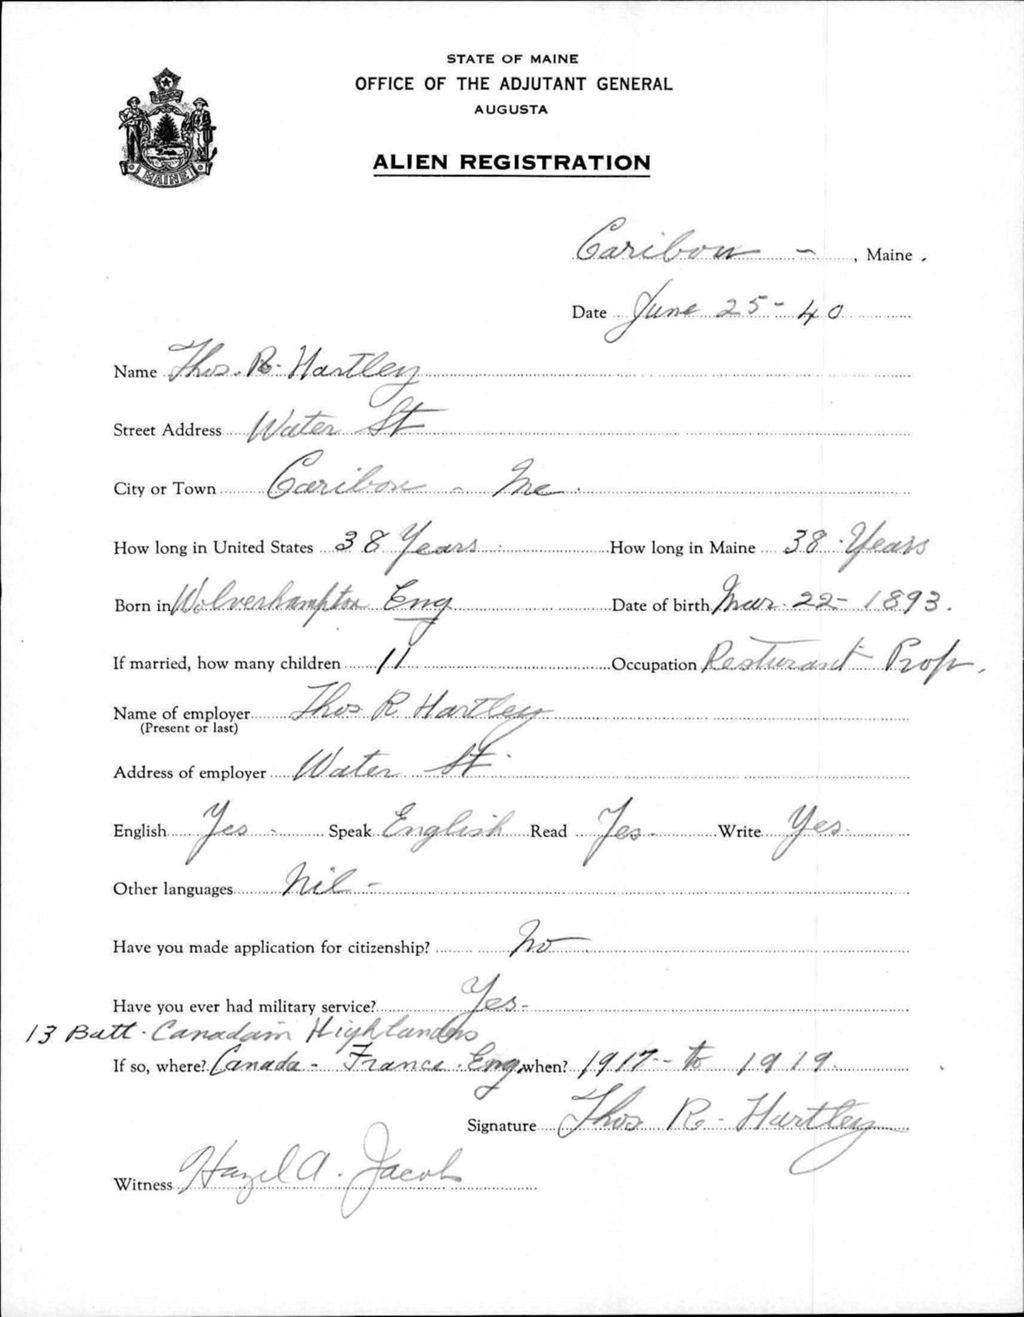 STATE OF MAINE
OFFICE OF THE ADJUTANT GENERAL
AUGUSTA
ALIEN REGISTRATION
MAINE
Caribou - , Maine.
Date June 25 - 40
Name Thos. R. Hartley
Street Address Water St
City or Town Caribou - Me.
How long in United States 38 Years How long in Maine 38 Years
Born in Wolverhampton Eng Date of birth Mar. 22 - 1893.
If married, how many children 11 Occupation Resturant Prop.
Name of employer Thos R Hartley
(Present or last)
Address of employer Water St.
English Yes - Speak English Read Yes. Write Yes.
Other languages Nil -
Have you made application for citizenship? No
Have you ever had military service? Yes -
13 Batt - Canadain Highlanders
If so, where? Canada - France. Eng. when? 1917 - to 1919.
Signature Thos R - Hartley
Witness Hazel A. Jacob